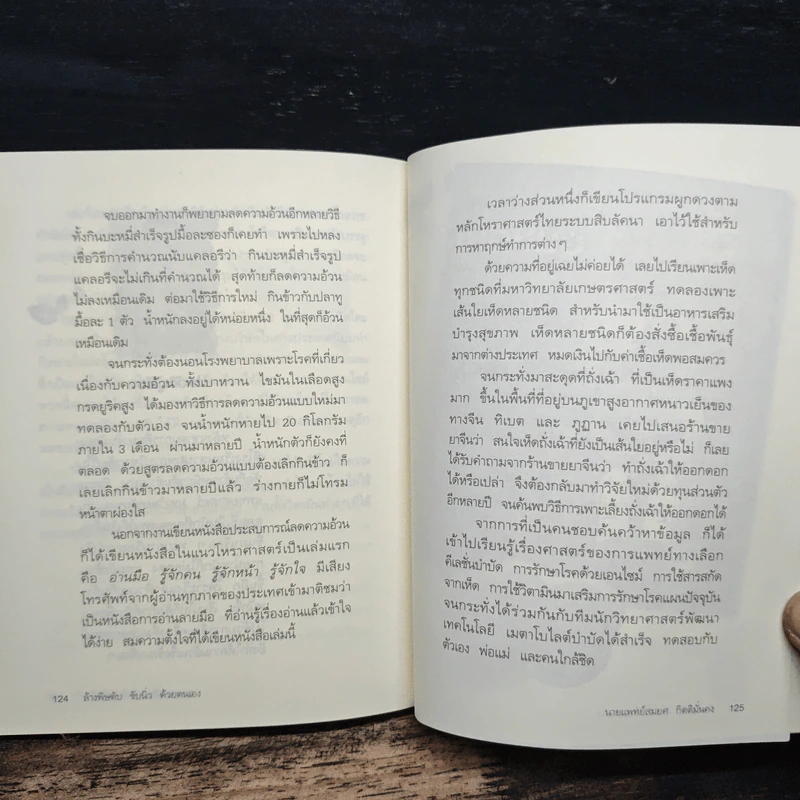 จบออกมาทำงานก็พยายามลดความอ้วนอีกหลายวิธี
ทั้งกินบะหมี่สำเร็จรูปมื้อละซองก็เคยทำ เพราะไปหลง
เชื่อวิธีการคำนวณนับแคลอรีว่า กินบะหมี่สำเร็จรูป
แคลอรีจะไม่เกินที่คำนวณได้ สุดท้ายก็ลดความอ้วน
ไม่ลงเหมือนเดิม ต่อมาใช้วิธีการใหม่ กินข้าวกับปลาทู
มื้อละ 1 ตัว น้ำหนักลงอยู่ได้หน่อยหนึ่ง ในที่สุดก็อ้วน
เหมือนเดิม
จนกระทั่งต้องนอนโรงพยาบาลเพราะโรคที่เกี่ยว
เนื่องกับความอ้วน ทั้งเบาหวาน ไขมันในเลือดสูง
กรดยูริคสูง ได้มองหาวิธีการลดความอ้วนแบบใหม่มา
ทดลองกับตัวเอง จนน้ำหนักหายไป 20 กิโลกรัม
ภายใน 3 เดือน ผ่านมาหลายปี น้ำหนักตัวก็ยังคงที่
ตลอด ด้วยสูตรลดความอ้วนแบบต้องเลิกกินข้าว ก็
เลยเลิกกินข้าวมาหลายปีแล้ว ร่างกายก็ไม่โทรม
หน้าตาผ่องใส
นอกจากงานเขียนหนังสือประสบการณ์ลดความอ้วน
ก็ได้เขียนหนังสือในแนวโหราศาสตร์เป็นเล่มแรก
คือ อ่านมือ รู้จักคน รู้จักหน้า รู้จักใจ มีเสียง
โทรศัพท์จากผู้อ่านทุกภาคของประเทศเข้ามาติชมว่า
เป็นหนังสือการอ่านลายมือ ที่อ่านรู้เรื่องอ่านแล้วเข้าใจ
ได้ง่าย สมความตั้งใจที่ได้เขียนหนังสือเล่มนี้
124 ล้างพิษตับ ขับนิ่ว ด้วยตนเอง
เวลาว่างส่วนหนึ่งก็เขียนโปรแกรมผูกดวงตาม
หลักโหราศาสตร์ไทยระบบสิบลัคนา เอาไว้ใช้สำหรับ
การหาฤกษ์ทำการต่างๆ
ด้วยความที่อยู่เฉยไม่ค่อยได้ เลยไปเรียนเพาะเห็ด
ทุกชนิดที่มหาวิทยาลัยเกษตรศาสตร์ ทดลองเพาะ
เส้นใยเห็ดหลายชนิด สำหรับนำมาใช้เป็นอาหารเสริม
บำรุงสุขภาพ เห็ดหลายชนิดก็ต้องสั่งซื้อเชื้อพันธุ์
มาจากต่างประเทศ หมดเงินไปกับค่าเชื้อเห็ดพอสมควร
จนกระทั่งมาสะดุดที่ถั่งเฉ้า ที่เป็นเห็ดราคาแพง
มาก ขึ้นในพื้นที่ที่อยู่บนภูเขาสูงอากาศหนาวเย็นของ
ทางจีน ทิเบต และ ภูฏาน เคยไปเสนอร้านขาย
ยาจีนว่า สนใจเห็ดถั่งเฉ้าที่ยังเป็นเส้นใยอยู่หรือไม่ ก็เลย
ได้รับคำถามจากร้านขายยาจีนว่า ทำถั่งเฉ้าให้ออกดอก
ได้หรือเปล่า จึงต้องกลับมาทำวิจัยใหม่ด้วยทุนส่วนตัว
อีกหลายปี จนค้นพบวิธีการเพาะเลี้ยงถั่งเฉ้าให้ออกดอกได้
จากการที่เป็นคนชอบค้นคว้าหาข้อมูล ก็ได้
เข้าไปเรียนรู้เรื่องศาสตร์ของการแพทย์ทางเลือก
คีเลชั่นบำบัด การรักษาโรคด้วยเอนไซม์ การใช้สารสกัด
จากเห็ด การใช้วิตามินมาเสริมการรักษาโรคแผนปัจจุบัน
จนกระทั่งได้ร่วมกันกับทีมนักวิทยาศาสตร์พัฒนา
เทคโนโลยี เมตาโบไลต์บำบัดได้สำเร็จ ทดสอบกับ
ตัวเอง พ่อแม่ และคนใกล้ชิด
นายแพทย์สมยศ กิตติมั่นคง 125